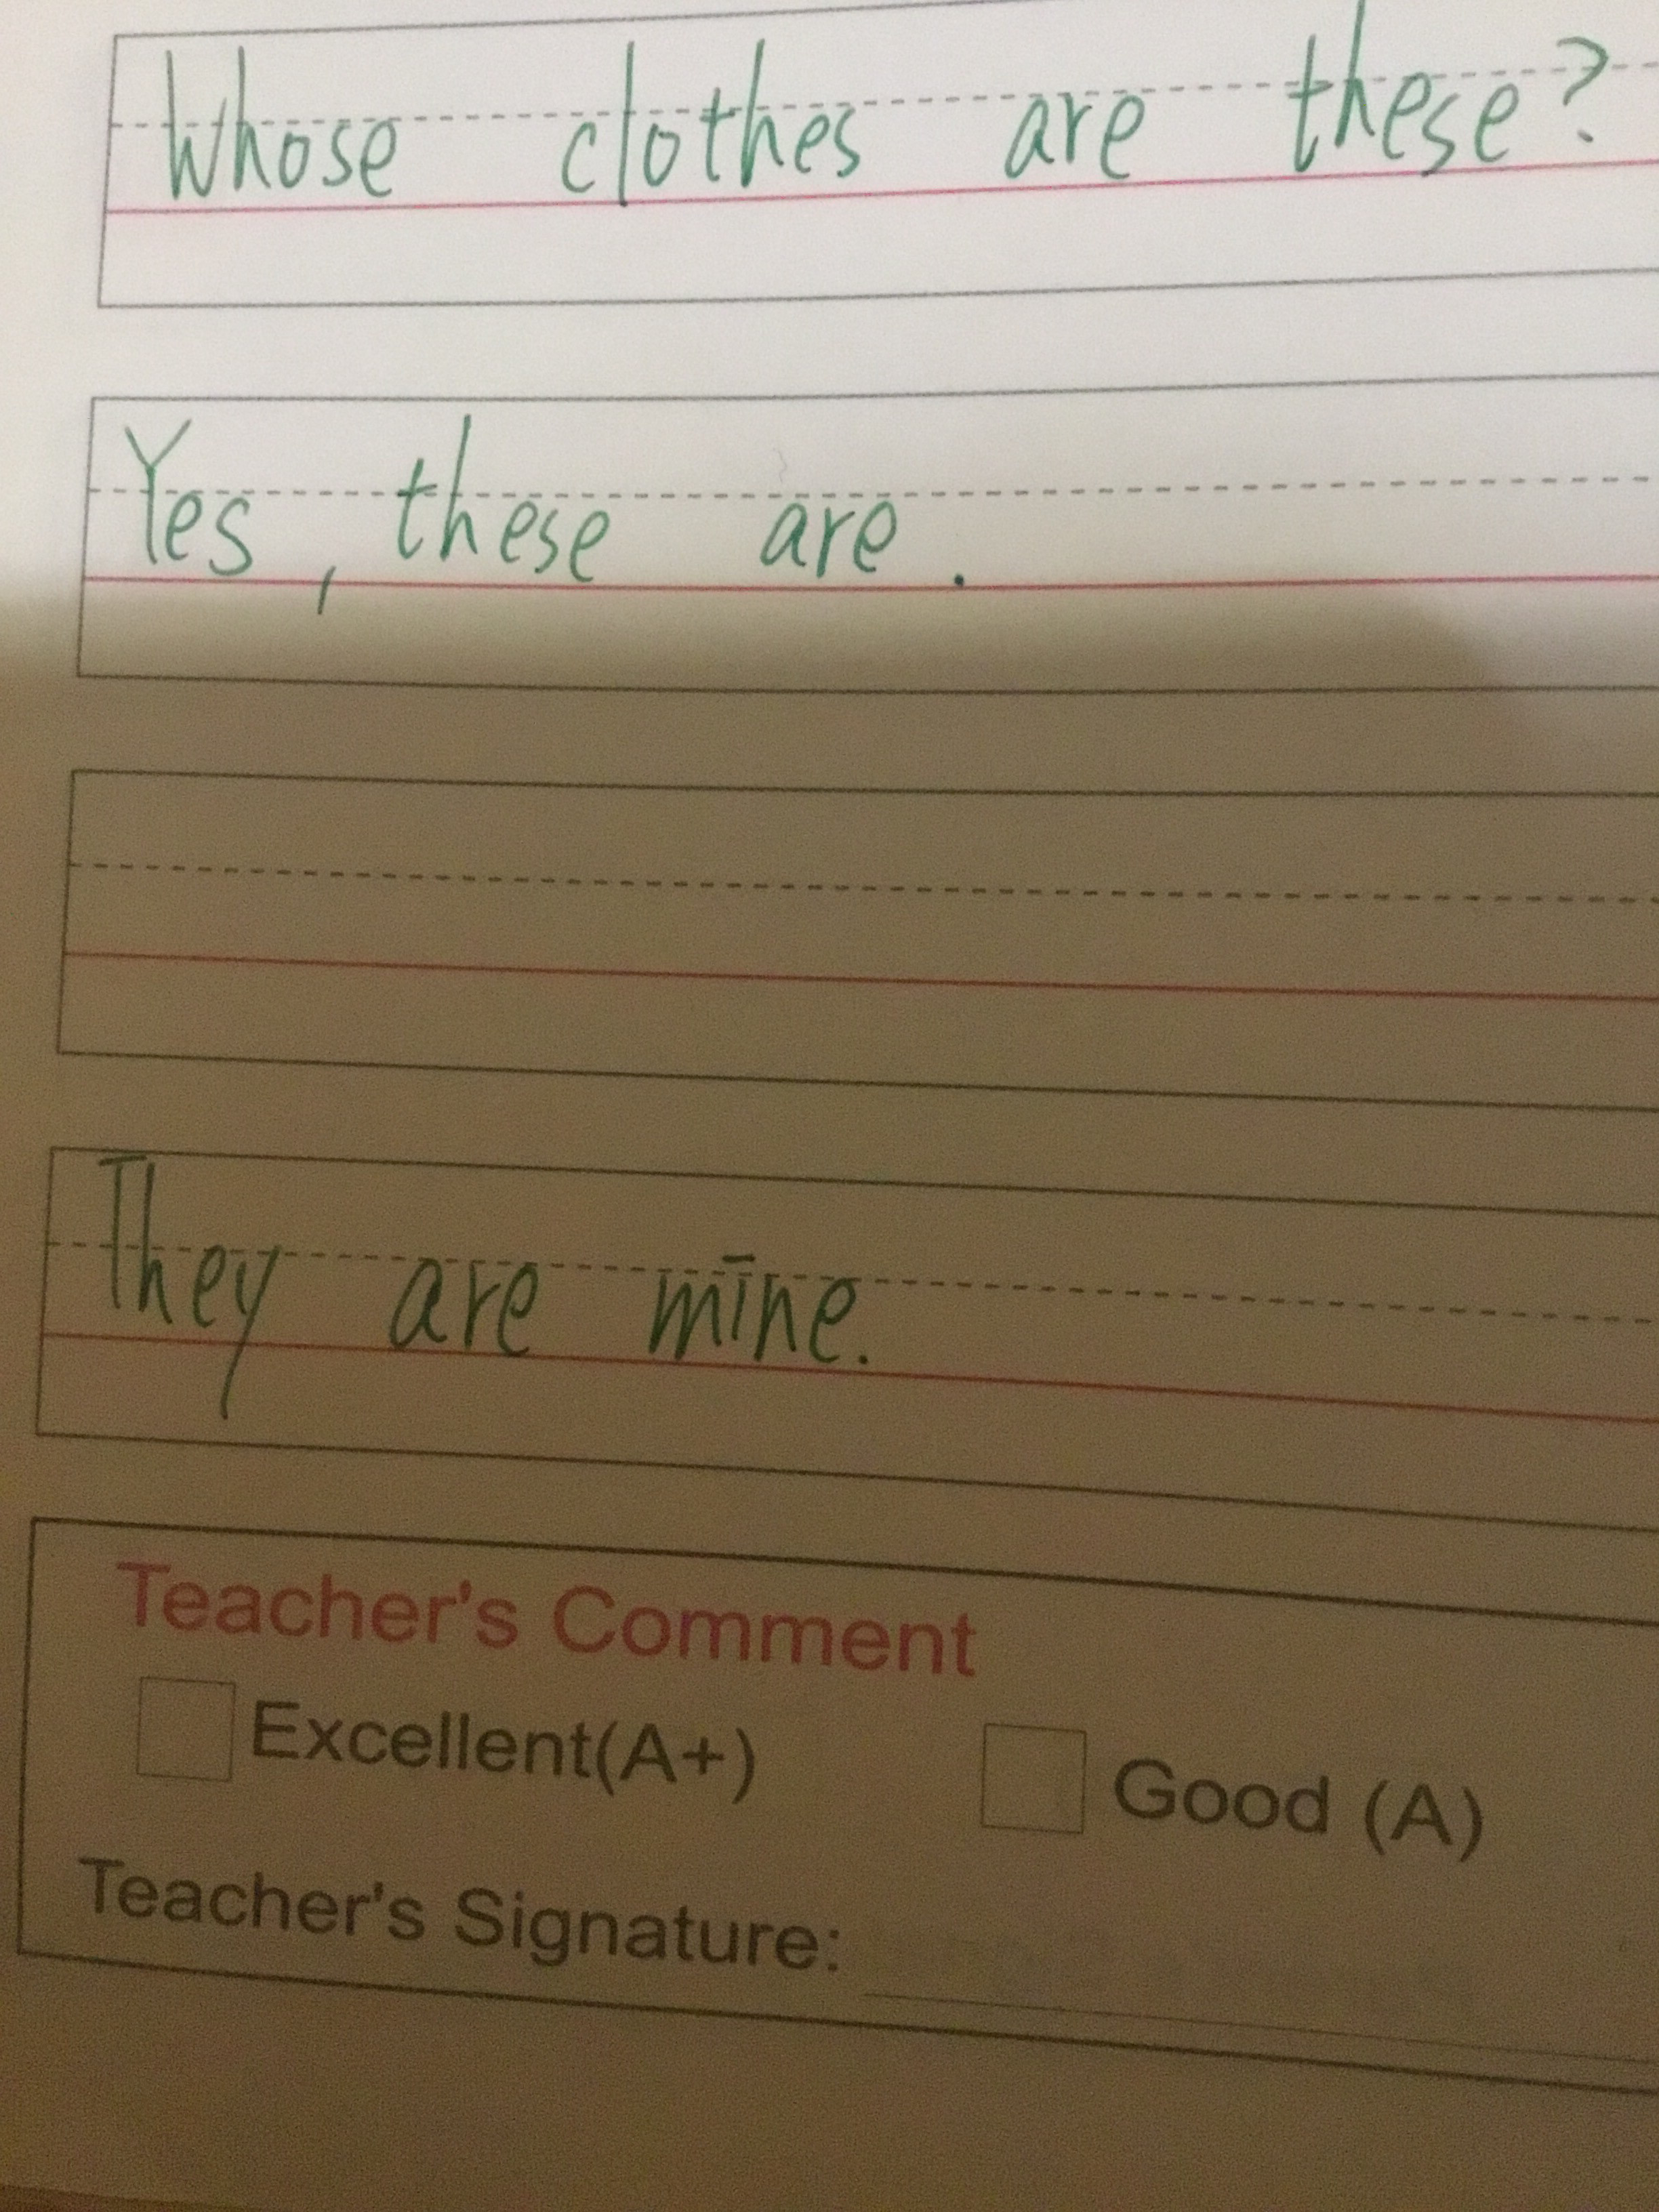 Whose clothes are these?
Yes, these are.
They are mine.
Teacher's Comment
Excellent(A+) Good (A)
Teacher's Signature: